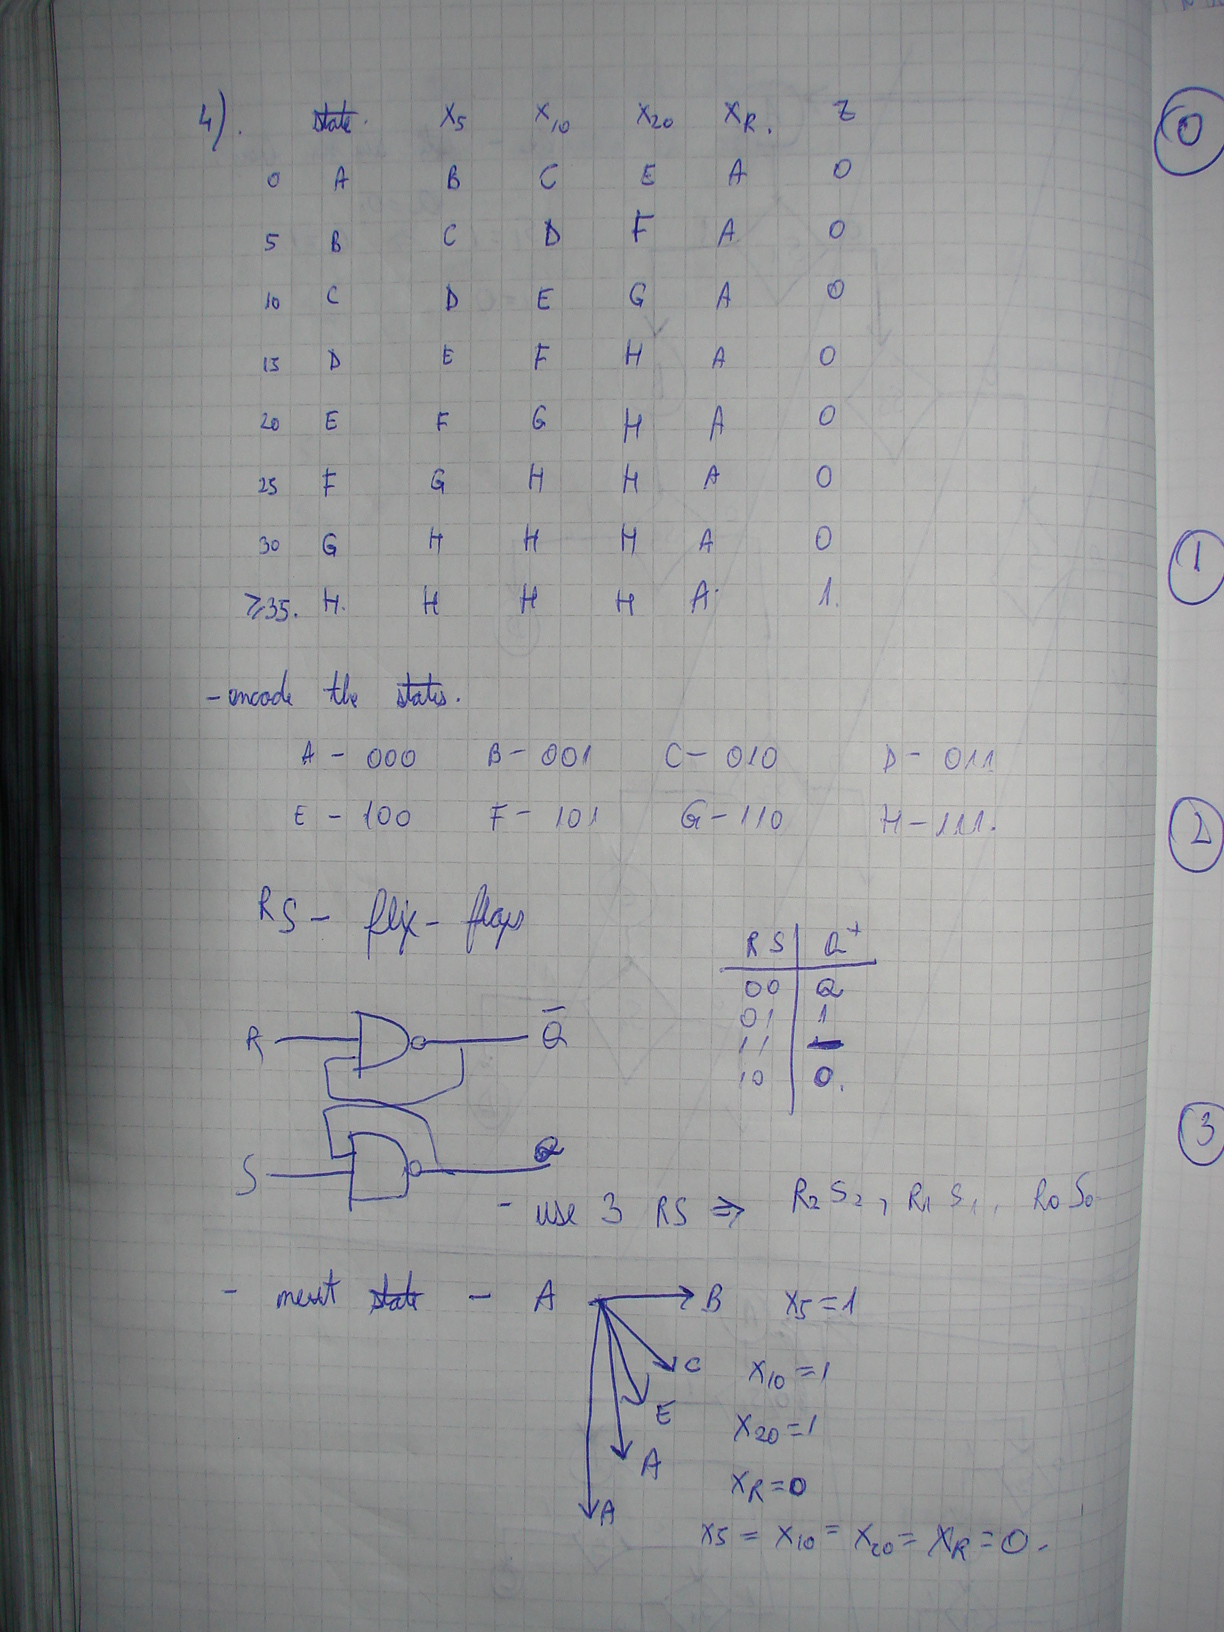 4). state. X5 X10 X20 XR. Z
0 A B C E A 0
5 B C D F A 0
10 C D E G A 0
15 D E F H A 0
20 E F G H A 0
25 F G H H A 0
30 G H H H A 0
≥35. H. H H H A. 1.
- encode the states.
A - 000 B - 001 C - 010 D - 011
E - 100 F - 101 G - 110 H - 111.
RS - flip - flops
R S Q+
00 Q
01 1
11 -
10 0.
R Q̄
S Q
- use 3 RS ⇒ R2 S2, R1 S1, R0 S0
- next state - A B X5=1
C X10=1
E X20=1
A XR=0
A X5 = X10 = X20 = XR = 0.
0
1
2
3